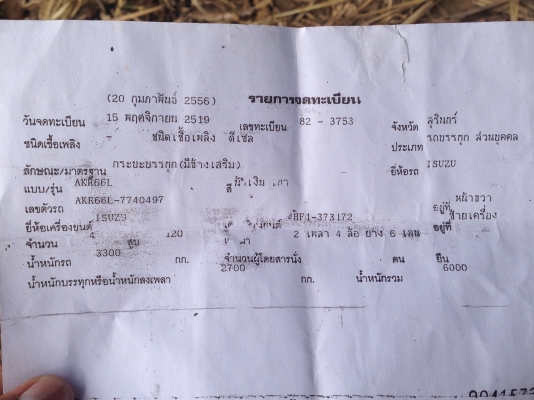 (20 กุมภาพันธ์ 2556) รายการจดทะเบียน
วันจดทะเบียน 15 พฤศจิกายน 2519 เลขทะเบียน 82 - 3753 จังหวัด สุรินทร์
ชนิดเชื้อเพลิง - ชนิดเชื้อเพลิง ดีเซล ประเภท รถบรรทุก ส่วนบุคคล
ลักษณะ/มาตรฐาน กระบะบรรทุก(มีข้างเสริม) ยี่ห้อรถ ISUZU
แบบ/รุ่น AKR66L สี น้ำเงิน เทา
เลขตัวรถ AKR66L-7740497 อยู่ที่ หน้าขวา
ยี่ห้อเครื่องยนต์ ISUZU 4HF1-373172 อยู่ที่ ซ้ายเครื่อง
จำนวน สูบ 120 2 เพลา 4 ล้อ ยาง 6 เส้น
น้ำหนักรถ 3300 กก. จำนวนผู้โดยสารนั่ง คน ยืน
น้ำหนักบรรทุกหรือน้ำหนักลงเพลา 2700 กก. น้ำหนักรวม 6000